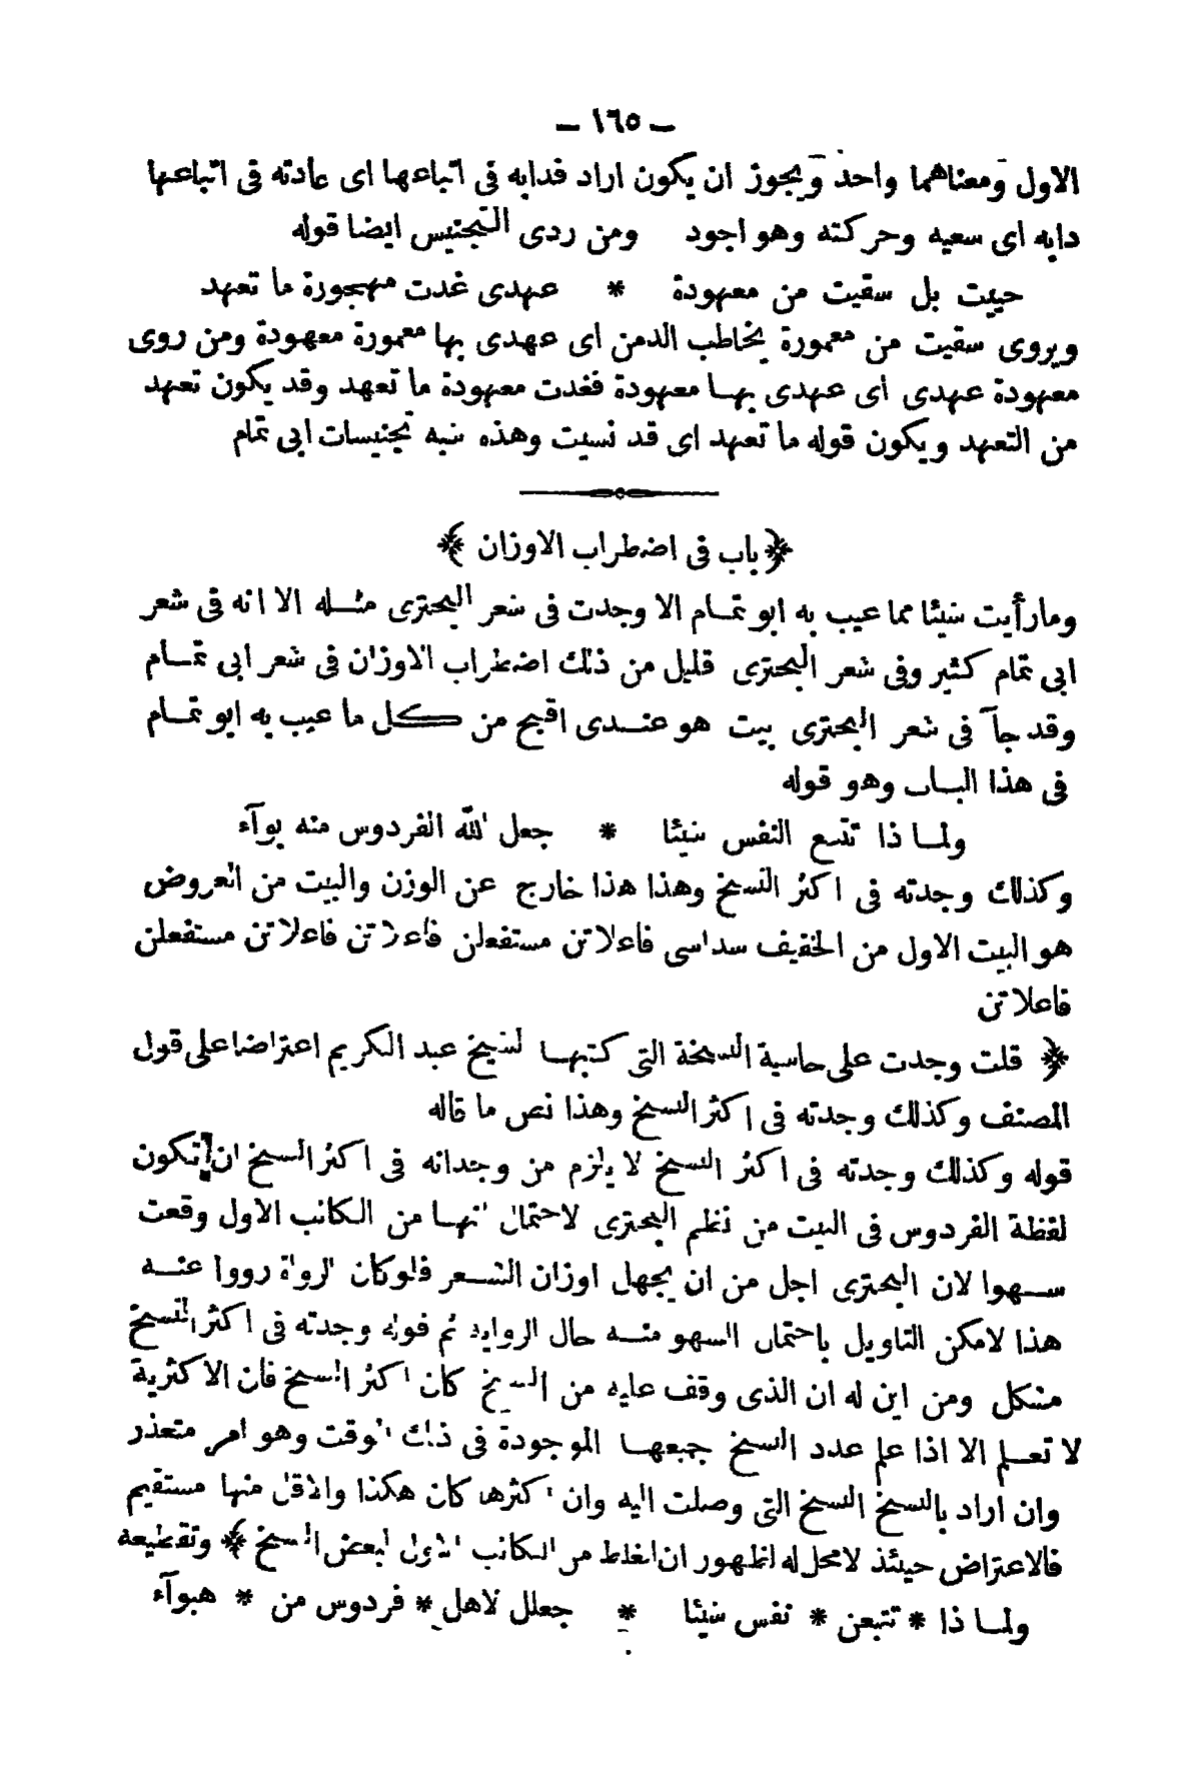 – ١٦٥ –
الاول ومعناهما واحد ويجوز ان يكون اراد فدابه فى اتباعها اى عادته فى اتباعها
دابه اى سعيه وحركته وهو اجود ومن ردى التجنيس ايضا قوله
حييت بل سقيت من معهودة * عهدى غدت مهجورة ما تعهد
ويروى سقيت من معمورة يخاطب الدمن اى عهدى بها معمورة معهودة ومن روى
معهودة عهدى اى عهدى بها معهودة فغدت معهودة ما تعهد وقد يكون تعهد
من التعهد ويكون قوله ما تعهد اى قد نسيت وهذه شبه تجنيسات ابى تمام
﴿ باب فى اضطراب الاوزان ﴾
ومارأيت شيئا مما عيب به ابو تمام الا وجدت فى شعر البحترى مثله الا انه فى شعر
ابى تمام كثير وفى شعر البحترى قليل من ذلك اضطراب الاوزان فى شعر ابى تمام
وقد جآ فى شعر البحترى بيت هو عندى اقبح من كل ما عيب به ابو تمام
فى هذا الباب وهو قوله
ولما ذا تتبع النفس شيئا * جعل الله الفردوس منه بوآء
وكذلك وجدته فى اكثر النسخ وهذا هذا خارج عن الوزن والبيت من العروض
هو البيت الاول من الخفيف سداسى فاعلاتن مستفعلن فاعلاتن فاعلاتن مستفعلن
فاعلاتن
﴿ قلت وجدت على حاشية النسخة التى كتبها لشيخ عبد الكريم اعتراضا على قول
المصنف وكذلك وجدته فى اكثر النسخ وهذا نص ما قاله
قوله وكذلك وجدته فى اكثر النسخ لا يلزم من وجدانه فى اكثر النسخ ان تكون
لفظة الفردوس فى البيت من نظم البحترى لاحتمال انها من الكاتب الاول وقعت
سهوا لان البحترى اجل من ان يجهل اوزان الشعر فلوكان الرواة رووا عنه
هذا لامكن التاويل باحتمال السهو منه حال الرواية ثم قوله وجدته فى اكثر النسخ
مشكل ومن اين له ان الذى وقف عليه من النسخ كان اكثر النسخ فان الاكثرية
لا تعلم الا اذا علم عدد النسخ جميعها الموجودة فى ذلك الوقت وهو امر متعذر
وان اراد بالنسخ النسخ التى وصلت اليه وان اكثرها كان هكذا والاقل منها مستقيم
فالاعتراض حينئذ لامحل له لظهور ان الغلط من الكاتب الاول لبعض النسخ ﴾ وتقطيعه
ولما ذا * تتبعن * نفس شيئا * جعلل لاهل * فردوس من * هبوآء